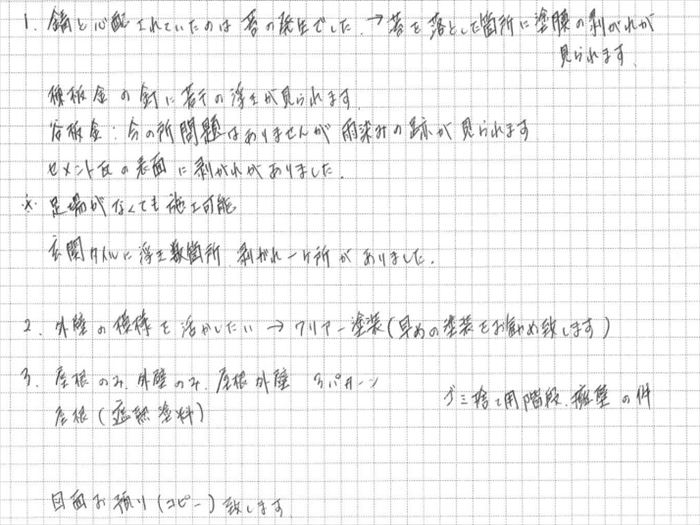 1. 錆と心配されていたのは苔の発生でした。→苔を落とした箇所に塗膜の剥がれが
見られます。
棟板金の釘に若干の浮きが見られます。
谷板金:今の所問題はありませんが雨染みの跡が見られます
セメント瓦の表面に剥がれがありました。
※足場がなくても施工可能
玄関タイルに浮き数箇所、剥がれ一ヶ所がありました。
2. 外壁の模様を活かしたい→クリアー塗装(早めの塗装をお勧め致します)
3. 屋根のみ、外壁のみ、屋根外壁 3パターン
屋根(遮熱塗料)
ゴミ捨て用階段、擁壁の件
図面お預り(コピー)致します